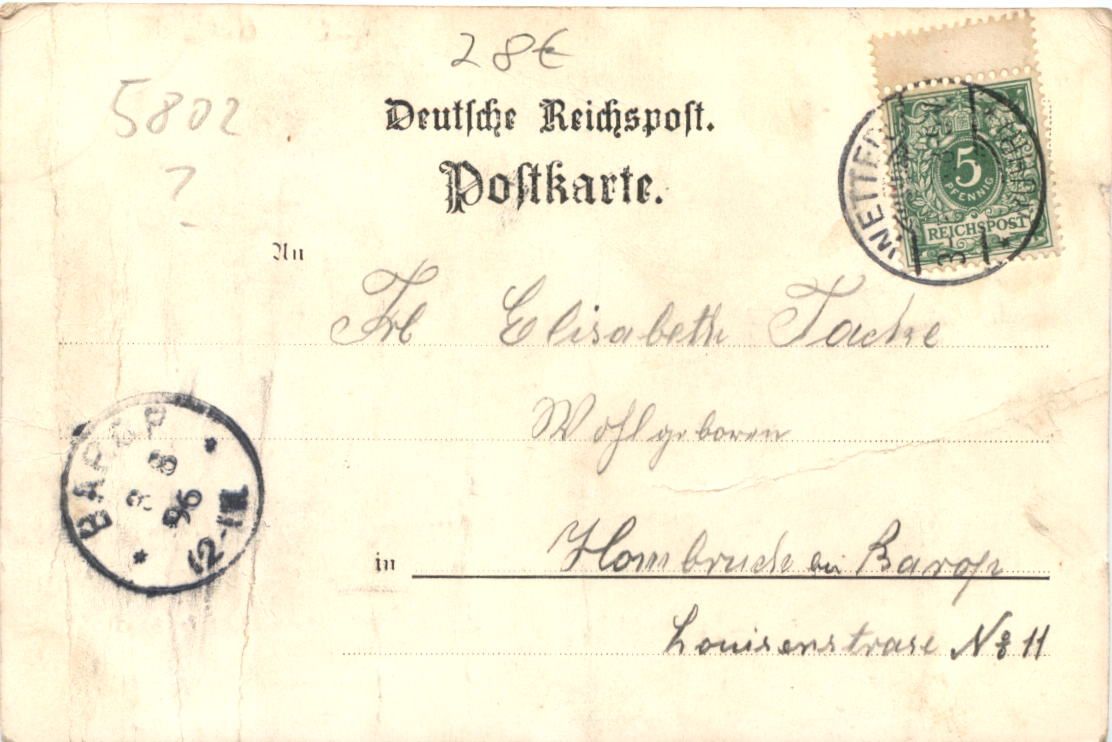 28€
5802
?
Deutsche Reichspost.
Postkarte.
5
PFENNIG
REICHSPOST
WETTER
An
Frl Elisabeth Tacke
Wohlgeboren
BAROP
3 8
96
12-1N
in Hombruch bei Barop
Louisenstrase No 11